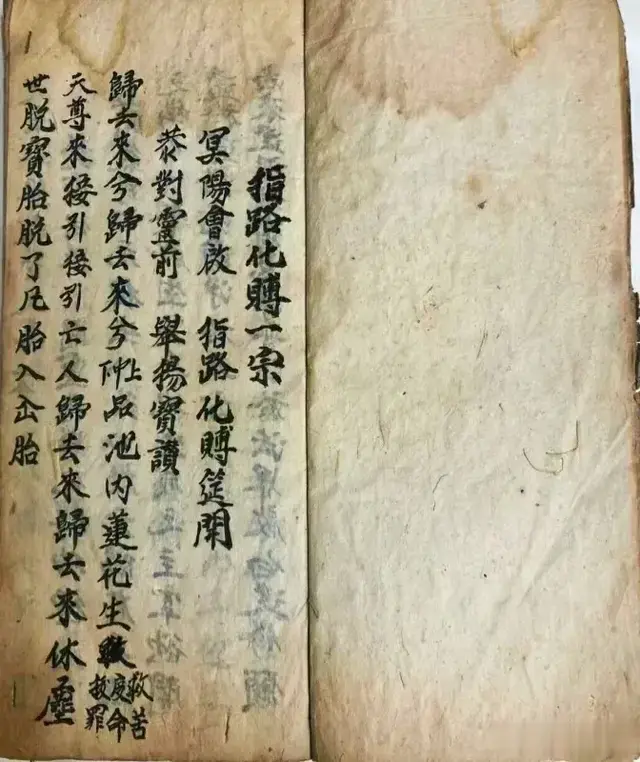 指路化賻一宗
冥陽會啟　指路化賻筵開
恭對靈前　舉揚寶讚
歸去來兮歸去來兮上中下品池內蓮花生救苦度命拔罪
天尊來接引接引亡人歸去來歸去來休塵
世脫寶胎脫了凡胎入仚胎